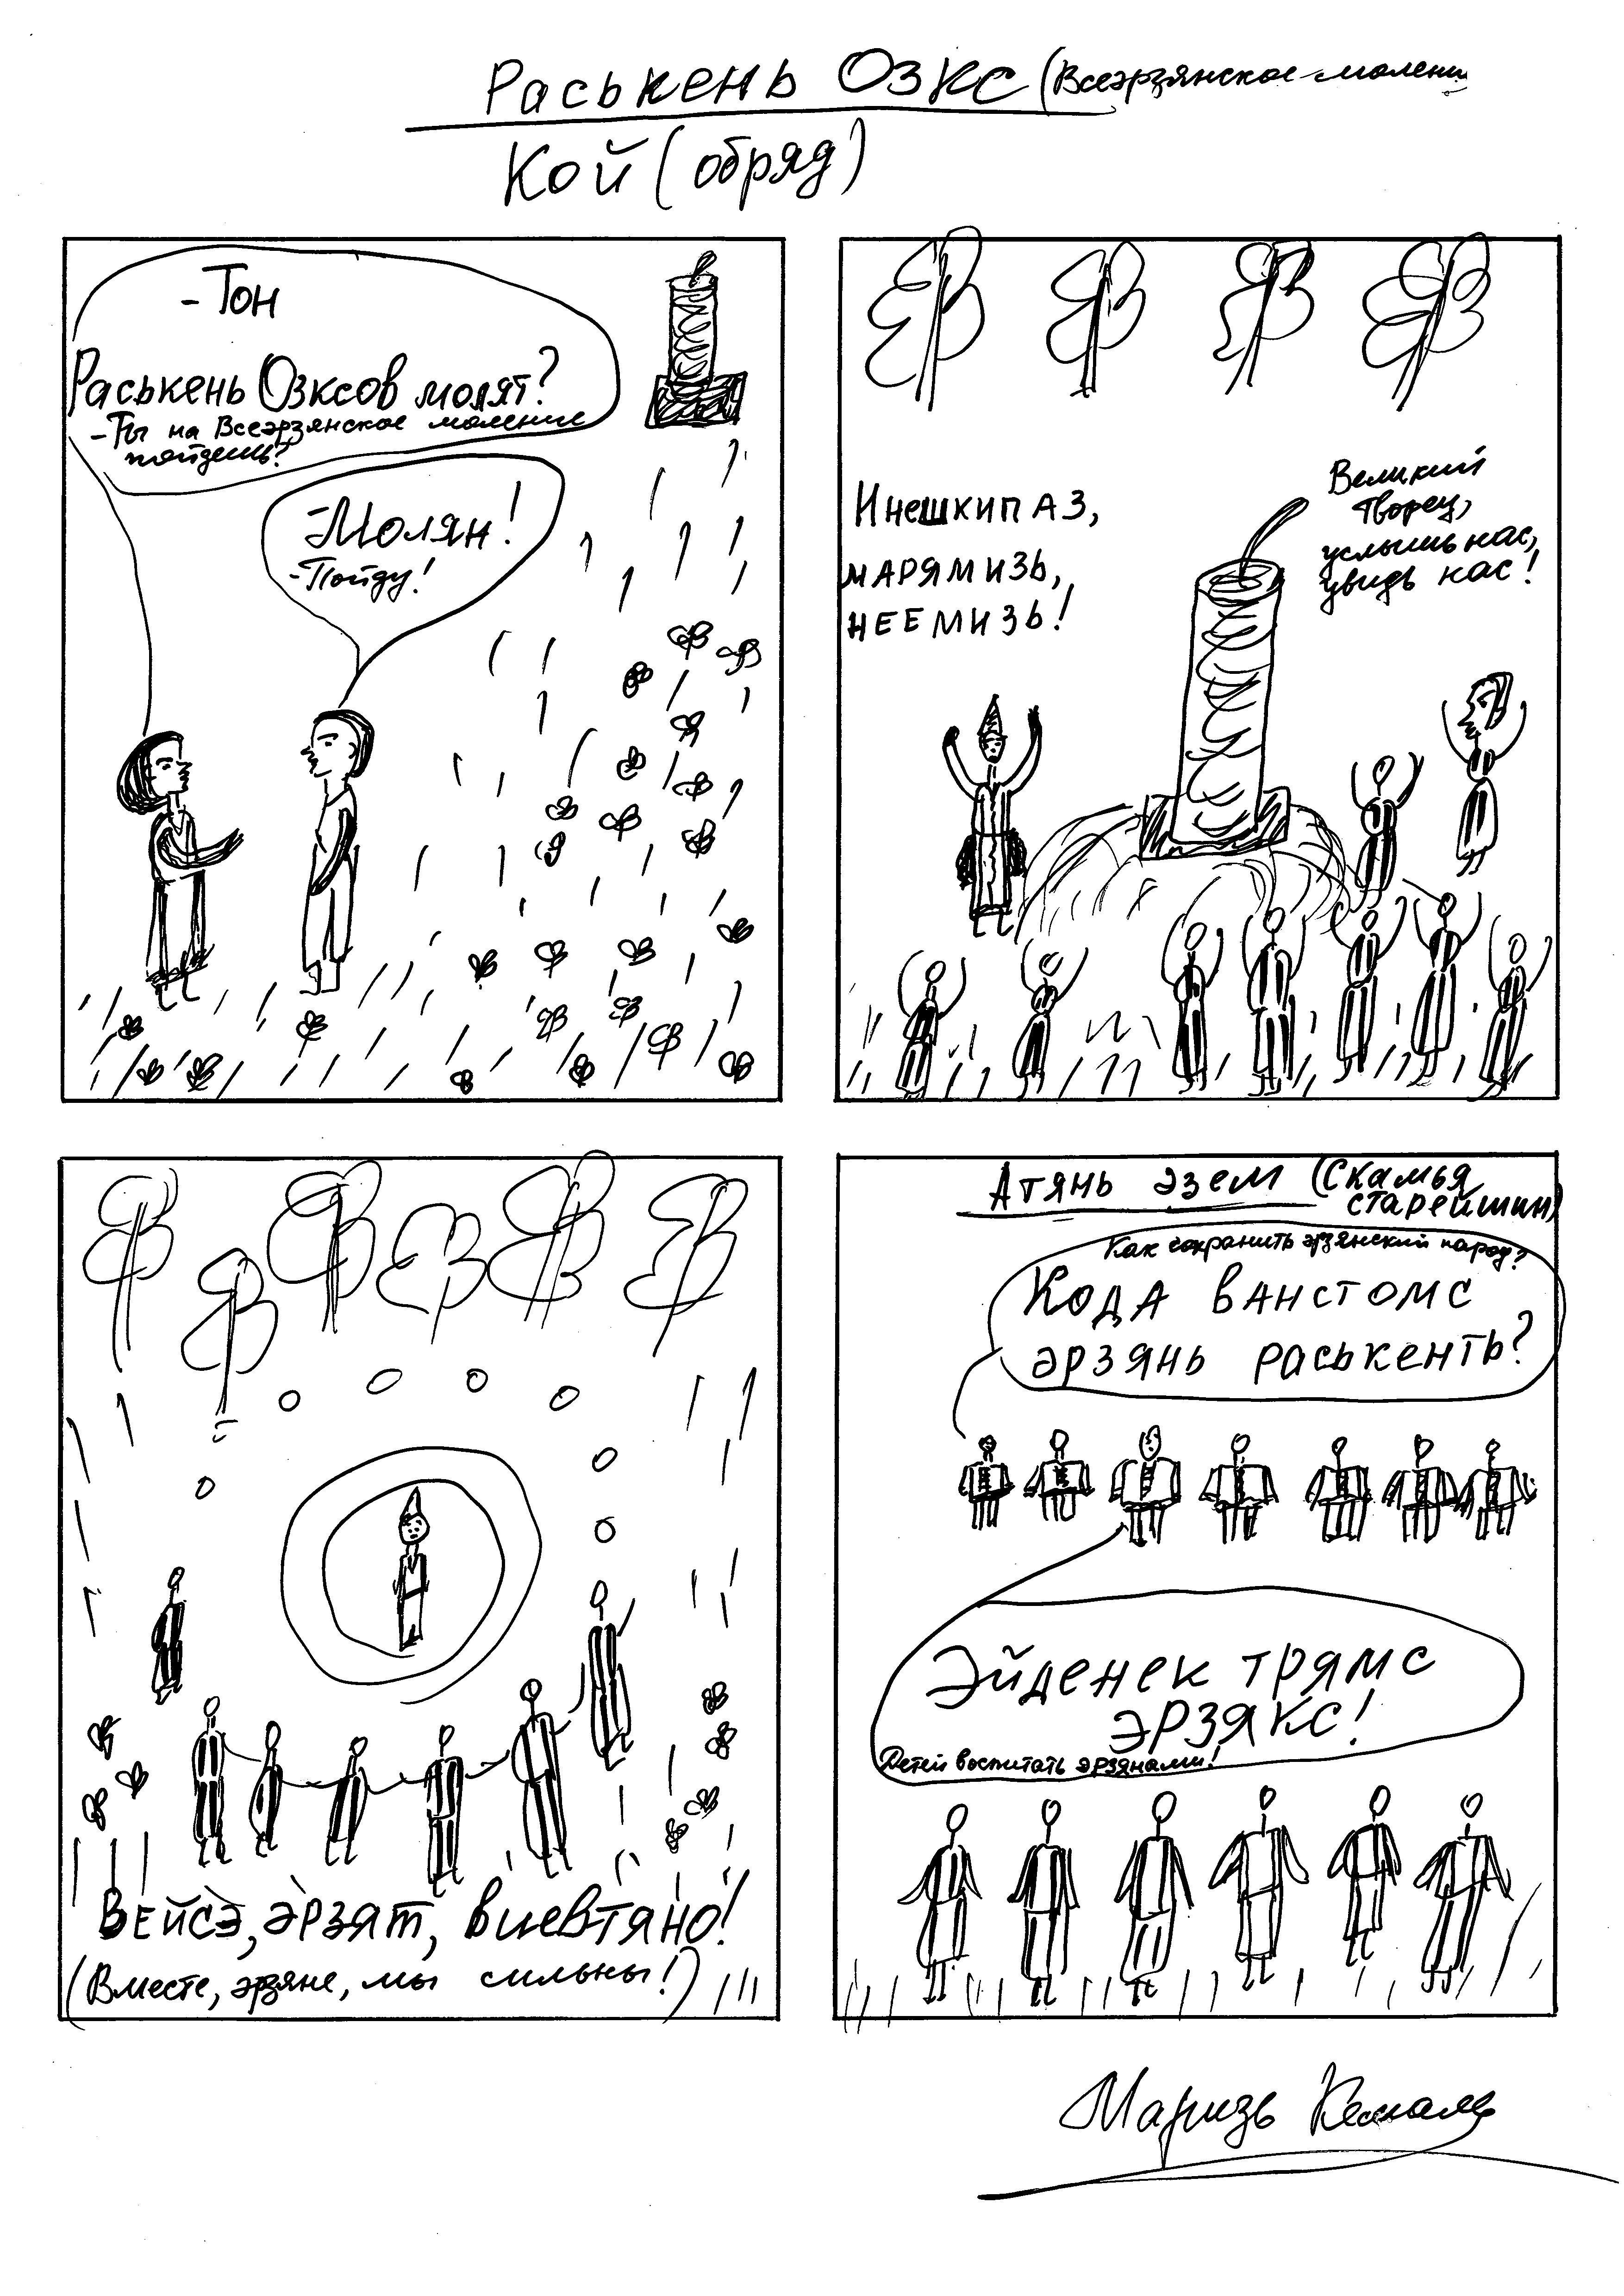 Раськень Озкс (Всеэрзянское молени
Кой (обряд)
- Тон
Раськень Озксов молят?
- Ты на Всеэрзянское моление
пойдешь?
- Молян!
- Пойду!
Инешкипаз,
марямизь,
неемизь!
Великий
Творец,
услышь нас,
увидь нас!
Вейсэ, эрзят, виевтяно!
(Вместе, эрзяне, мы сильны!)
Атянь эзем (Скамья
старейшин)
Как сохранить эрзянский народ?
Кода ванстомс
эрзянь раськенть?
Эйденек трямс
эрзякс!
Детей воспитать эрзянами!
Маризь Кемаль